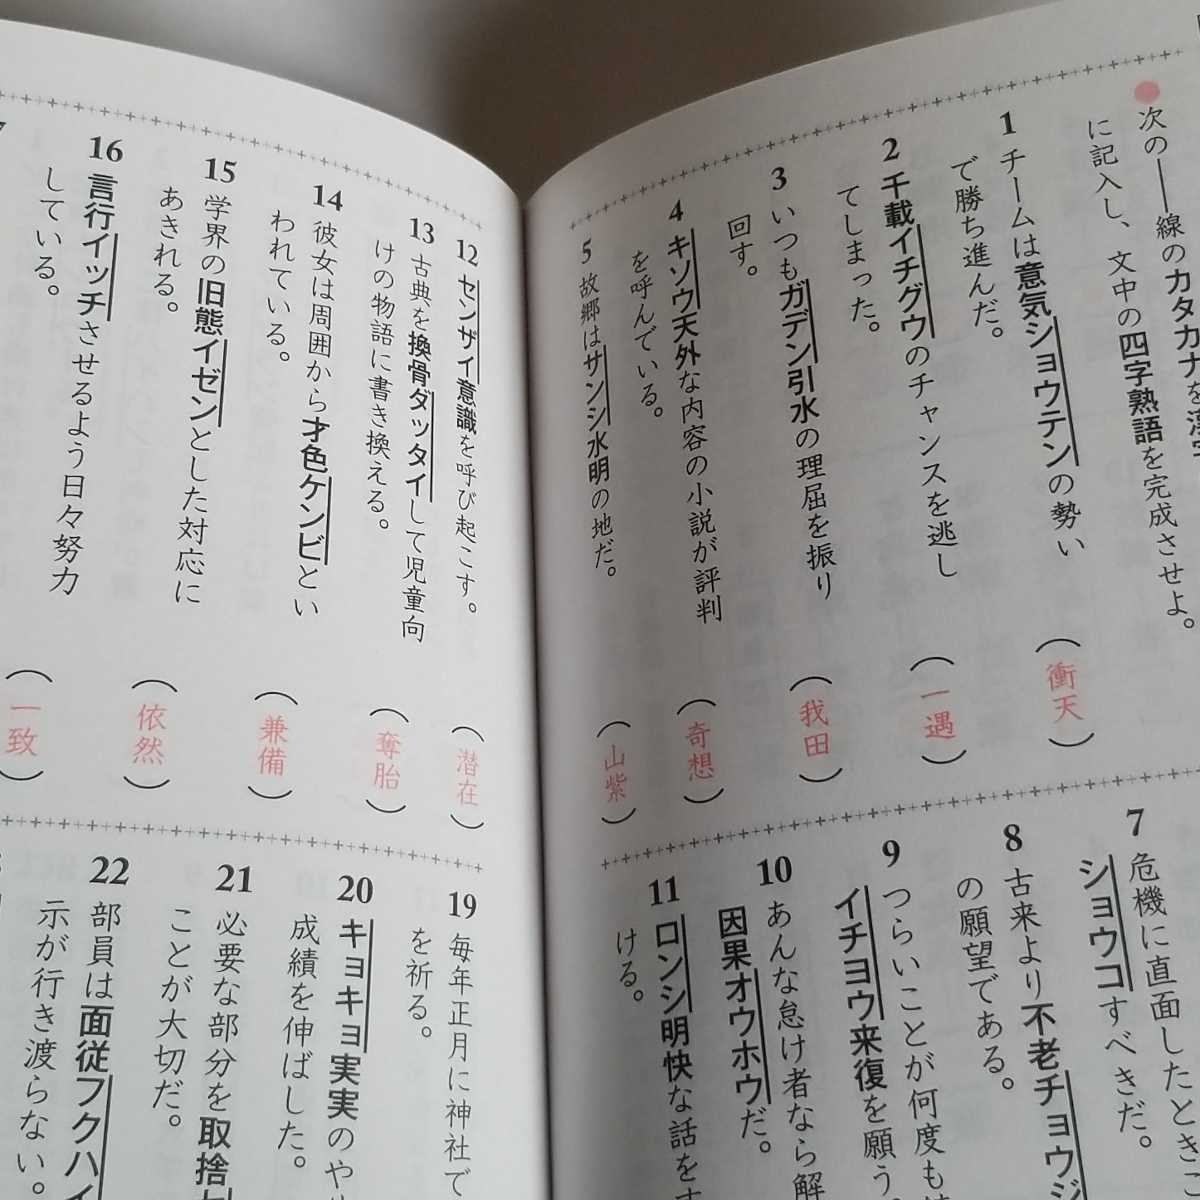 次の――線のカタカナを漢字
に記入し、文中の四字熟語を完成させよ。
1 チームは意気ショウテンの勢い
で勝ち進んだ。
（衝天）
2 千載イチグウのチャンスを逃し
てしまった。
（一遇）
3 いつもガデン引水の理屈を振り
回す。
（我田）
4 キソウ天外な内容の小説が評判
を呼んでいる。
（奇想）
5 故郷はサンシ水明の地だ。
（山紫）
7 危機に直面したときこ
ショウコすべきだ。
8 古来より不老チョウジ
の願望である。
9 つらいことが何度も
イチヨウ来復を願う
10 あんな怠け者なら解
因果オウホウだ。
11 ロンシ明快な話をす
ける。
12 センザイ意識を呼び起こす。
（潜在）
13 古典を換骨ダッタイして児童向
けの物語に書き換える。
（奪胎）
14 彼女は周囲から才色ケンビとい
われている。
（兼備）
15 学界の旧態イゼンとした対応に
あきれる。
（依然）
16 言行イッチさせるよう日々努力
している。
（一致）
19 毎年正月に神社で
を祈る。
20 キョキョ実実のや
成績を伸ばした。
21 必要な部分を取捨
ことが大切だ。
22 部員は面従フクハイ
示が行き渡らない。